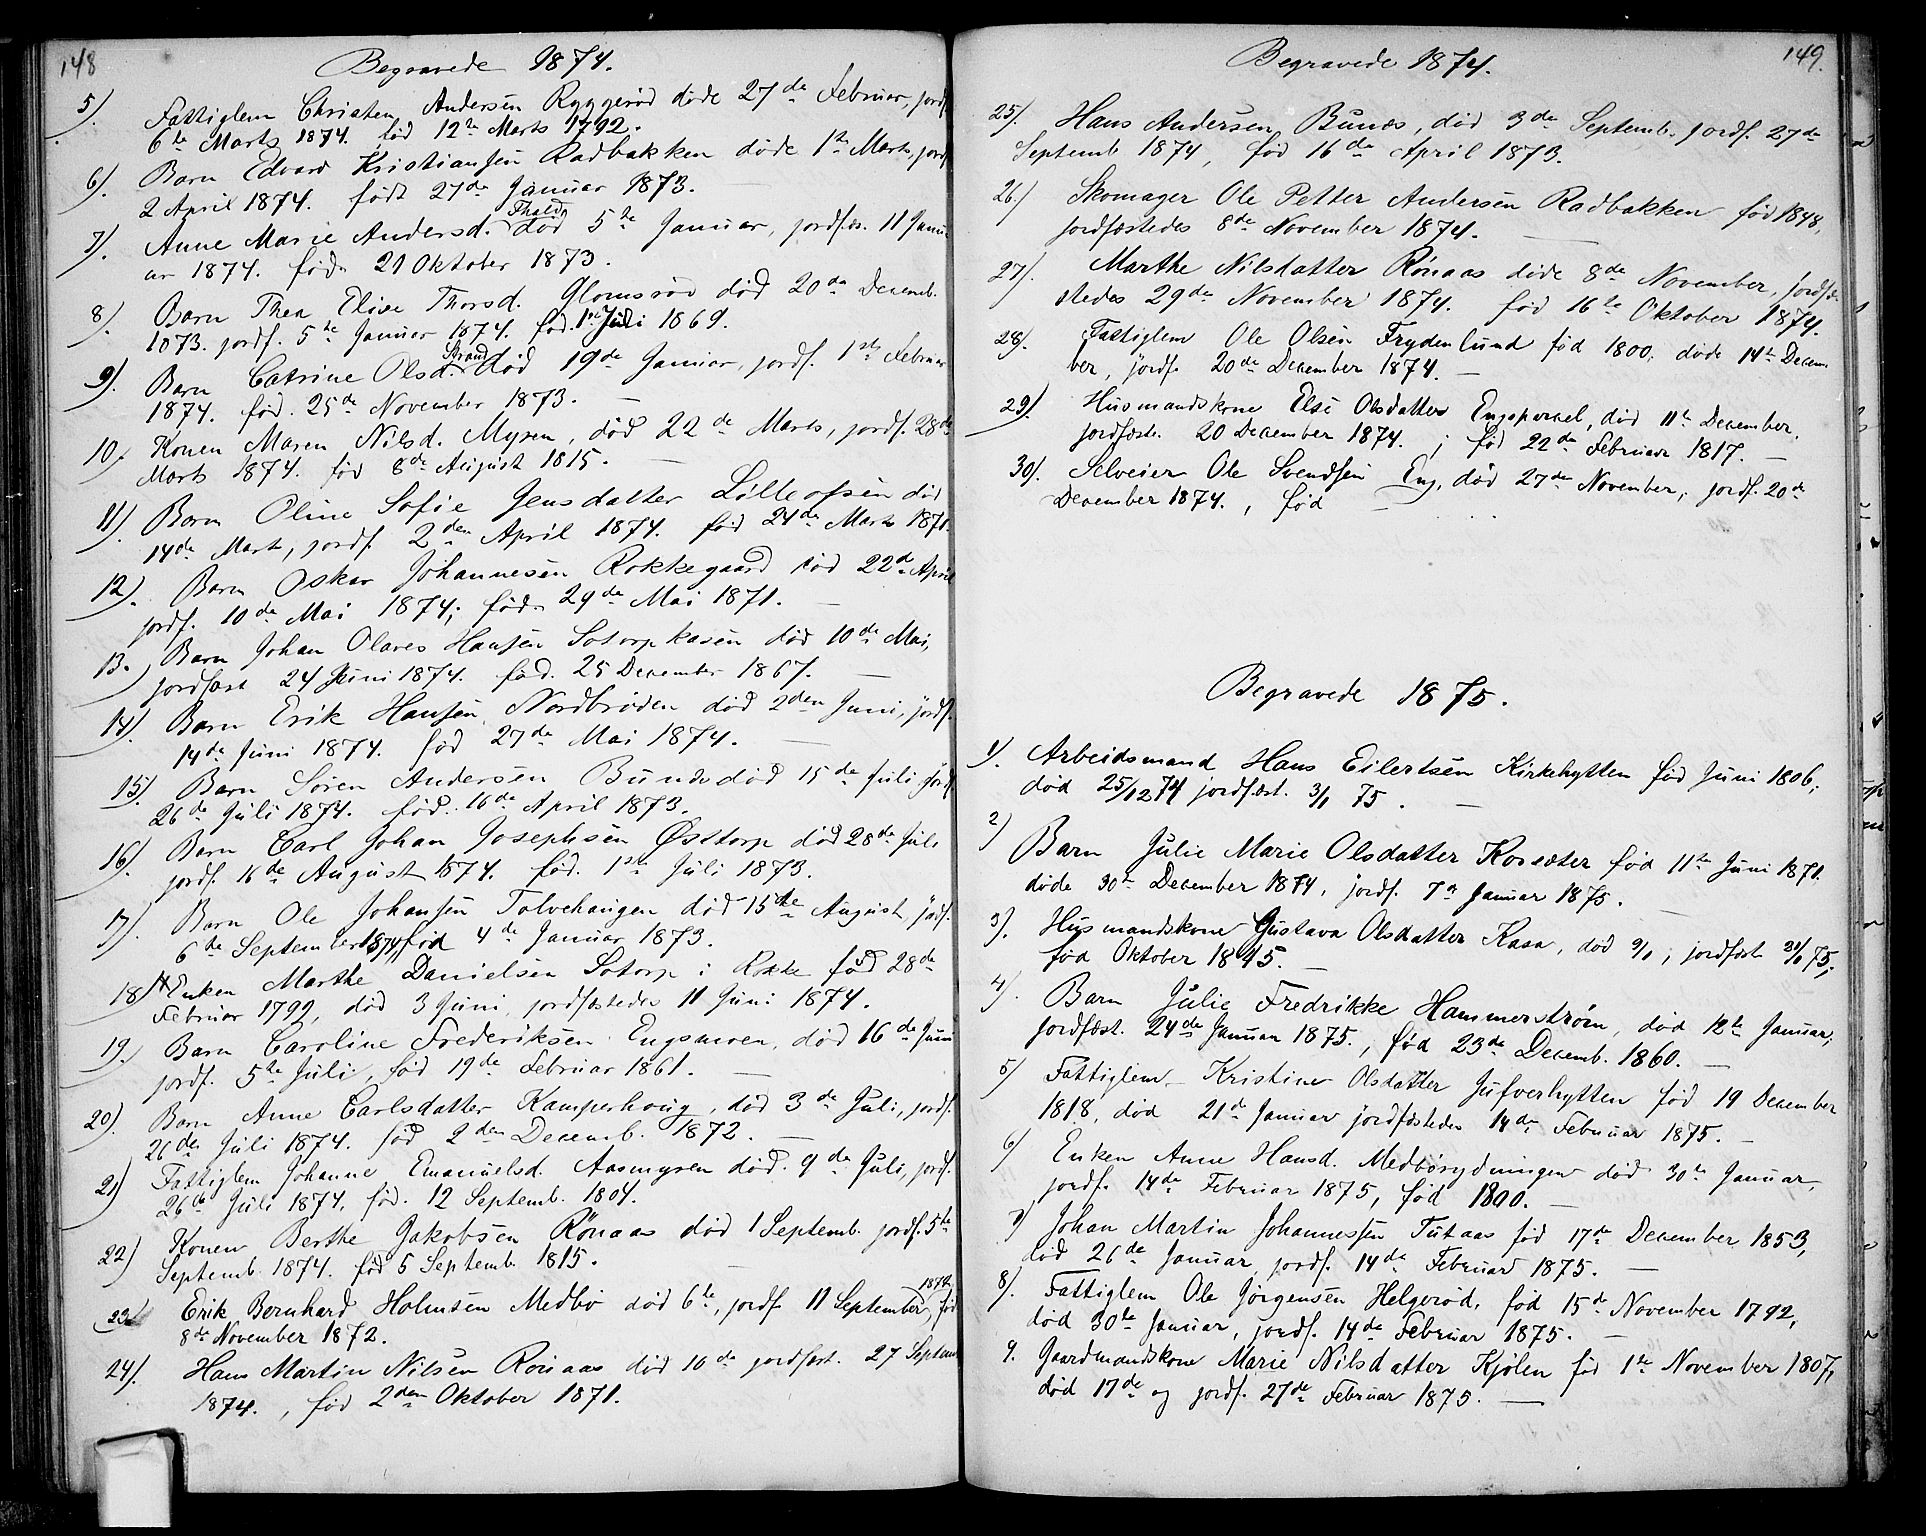 148
Begravede 1874.
5). Fattiglem Christen Andersen Ryggerød døde 27de Februar, jordf
6te Marts 1874. fød 12te Marts 1792.
6). Barn Edvard Kristiansen Radbakken døde 1ste Marts, jordf
2 April 1874. født 27de Januar 1873.
7). Anne Marie Andersd. Thald. død 5te Januar, jordfæs. 11 Janu-
ar 1874. fød. 21 Oktober 1873.
8). Barn Thea Elise Thorsd. Glomsrød død 20de Decemb.
1873. jordf. 5te Januar 1874. fød. 1ste Juli 1869.
9). Barn Catrine Olsd. Strand død 19de Januar, jordf. 1ste Februar
1874. fød. 25de November 1873. —
10. Konen Maren Nilsd. Mysen, død 22de Marts, jordf. 28de
Marts 1874. fød 8de August 1815. —
11). Barn Oline Sofie Jensdatter Lilleaasen død
14de Marts, jordf. 2den April 1874. fød 24de Marts 1871.
12). Barn Oskar Johannesen Rokkegaard død 22de April
jordf. 10de Mai 1874; fød. 29de Mai 1871. —
13. Barn Johan Olares Hansen Sotorpkasen død 10de Mai,
jordfæst 24 Juni 1874. fød. 25 December 1867. —
14). Barn Erik Hansen Nordbrøden død 2den Juni, jordf.
14de Juni 1874. fød 27de Mai 1874. —
15). Barn Søren Andersen Bunæs død 15de Juli jordf
26de Juli 1874. fød. 16de April 1873.
16). Barn Carl Johan Josephsen Østtorp død 28de Juli
jordf. 16de August 1874. fød. 1ste Juli 1873.
17). Barn Ole Johansen Tolvehaugen død 15de August, jordf.
6te September 1874, fød 4de Januar 1873.
18) Enken Marthe Danielsen Sotorp i Rokke fød 28de
Februar 1799, død 3 Juni, jordfæstedes 11 Juni 1874.
19. Barn Caroline Frederiksen Engsmoen, død 16de Juni
jordf. 5te Juli, fød 19de Februar 1861. —
20). Barn Anne Carlsdatter Kamperhoug, død 3de Juli, jordf.
26de Juli 1874. fød 2den Decemb. 1872. —
21) Fattiglem Johanne Emanuelsd. Aasmysen død. 9de Juli, jordf.
26de Juli 1874, fød. 12 Septemb. 1804.
22) Konen Berthe Jakobsen Rønaas død 1 Septemb. jordf. 5te
Septemb. 1874. fød 5 Septemb. 1815.
23. Erik Bernhard Holmsen Medbø død 6te, jordf. 11 September, 1874 fød
8de November 1872.
24). Hans Martin Nilsen Rønaas død 10de jordfæst. 27 Septem
1874. , fød 2den Oktober 1871.
149.
Begravede 1874.
25). Hans Andersen Bunæs, død 3de Septemb. jordf. 27de
Septemb 1874, fød 16de April 1873.
26.) Skomager Ole Petter Andersen Radbakken fød 1848,
jordfæstedes 8de November 1874. —
27). Marthe Nilsdatter Rønaas døde 8de November, jordfæ-
stedes 29de November 1874. fød 16te Oktober 1874.
28). Fattiglem Ole Olsen Frydenlund fød 1800, døde 14de Decem-
ber, jordf. 20de December 1874. —
29). Husmandskone Else Olsdatter Engeparsel, død 11te December,
jordfæst. 20 December 1874. ; fød 22de Februar 1817. —
30). Selveier Ole Svendsen Eng, død 27de November, jordf. 20de
December 1874. , fød —
Begravede 1875.
1). Arbeidsmand Hans Eilertsen Kirkehytten fød Juni 1806;
død 25/12 74 jordfæst. 3/1 75. —
2) Barn Julie Marie Olsdatter Korsæter fød 11te Juni 1871.
døde 30te December 1874, jordf. 7de Januar 1875. —
3). Husmandskone Gustava Olsdatter Kasa, død 9/1, jordfæst 31/1 75,
fød Oktober 1845. —
4). Barn Julie Fredrikke Hammerstrøm, død 12te Januar,
jordfæst. 24de Januar 1875., fød 23de Decemb. 1860. —
5) Fattiglem Kristine Olsdatter Jufverhytten fød 19 December
1818, død 21de Januar jordfæstedes 14de Februar 1875. —
6) Enken Anne Hansd. Medbørydningen død 30te Januar,
jordf. 14de Februar 1875, fød 1800. —
7) Johan Martin Johannessen Tutaas fød 17de December 1853,
død 26de Januar, jordf. 14de Februar 1875. —
8). Fattiglem Ole Jørgensen Helgerød, fød 15de November 1792,
død 30te Januar, jordf. 14de Februar 1875. —
9. Gaardmandskone Marie Nilsdatter Kjølen fød 1ste November 1807,
død 17de og jordf. 27de Februar 1875. —